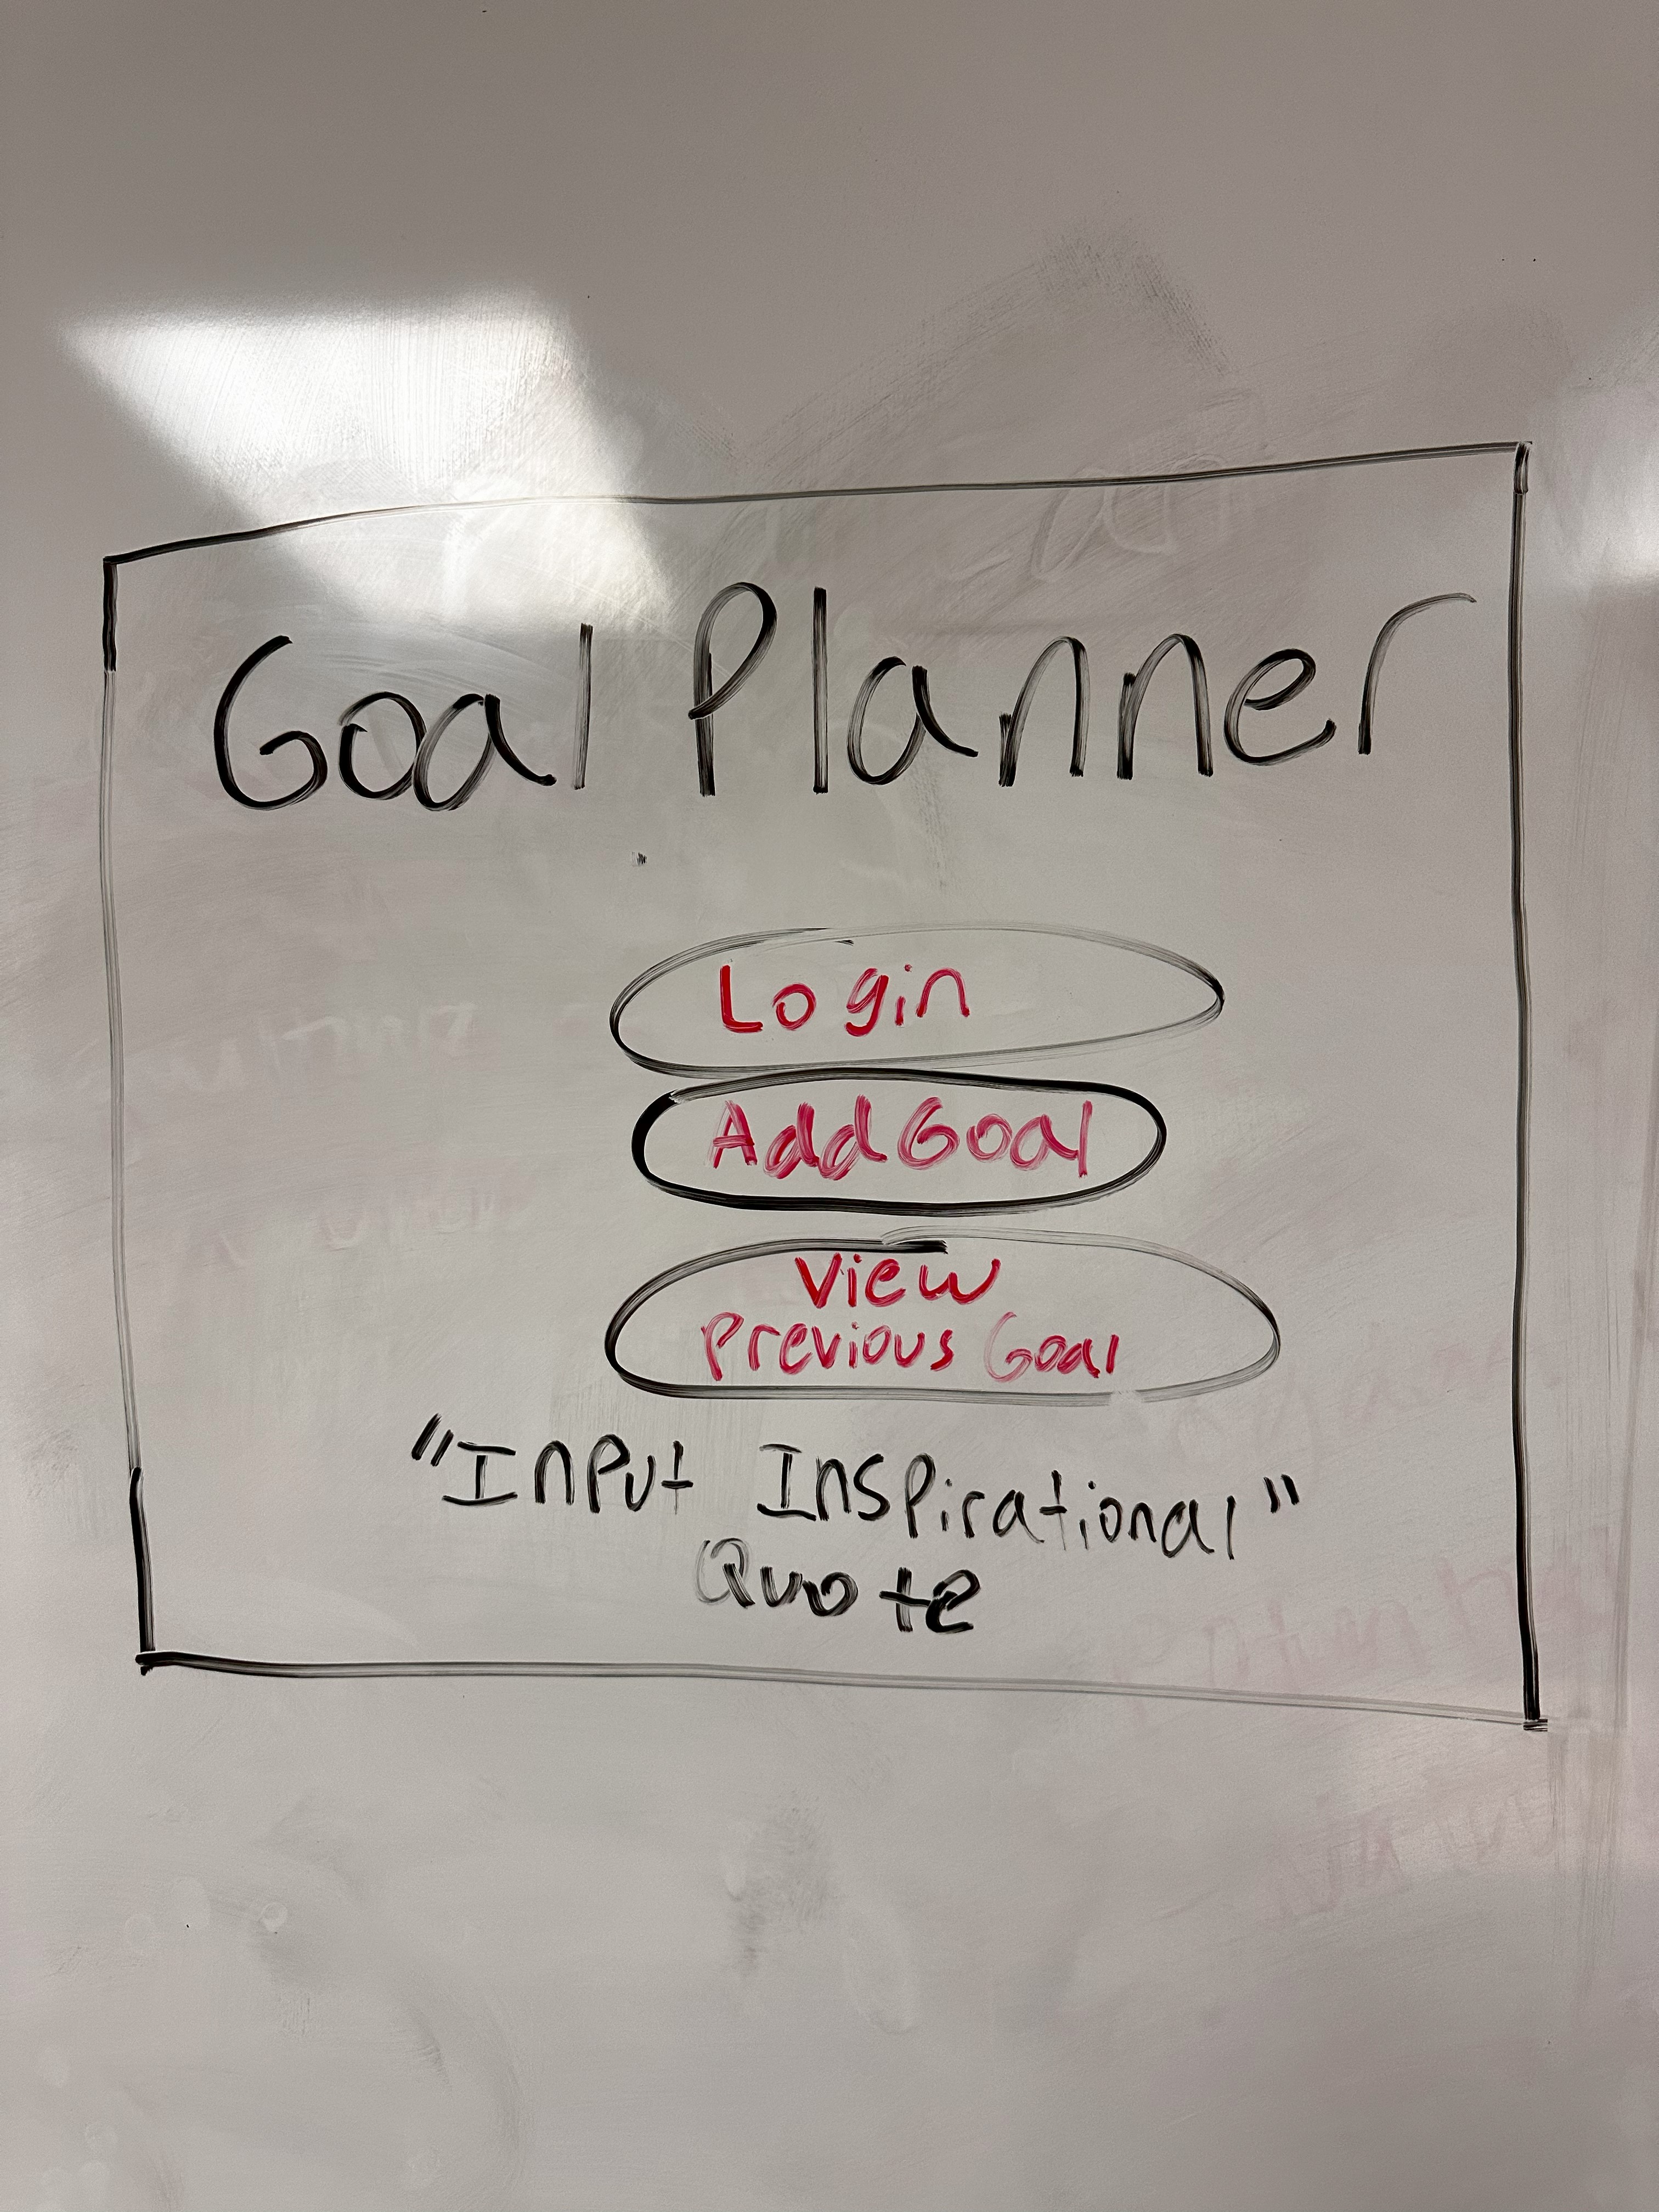 Goal Planner
Login
Add Goal
View
Previous Goal
"Input Inspirational"
Quote